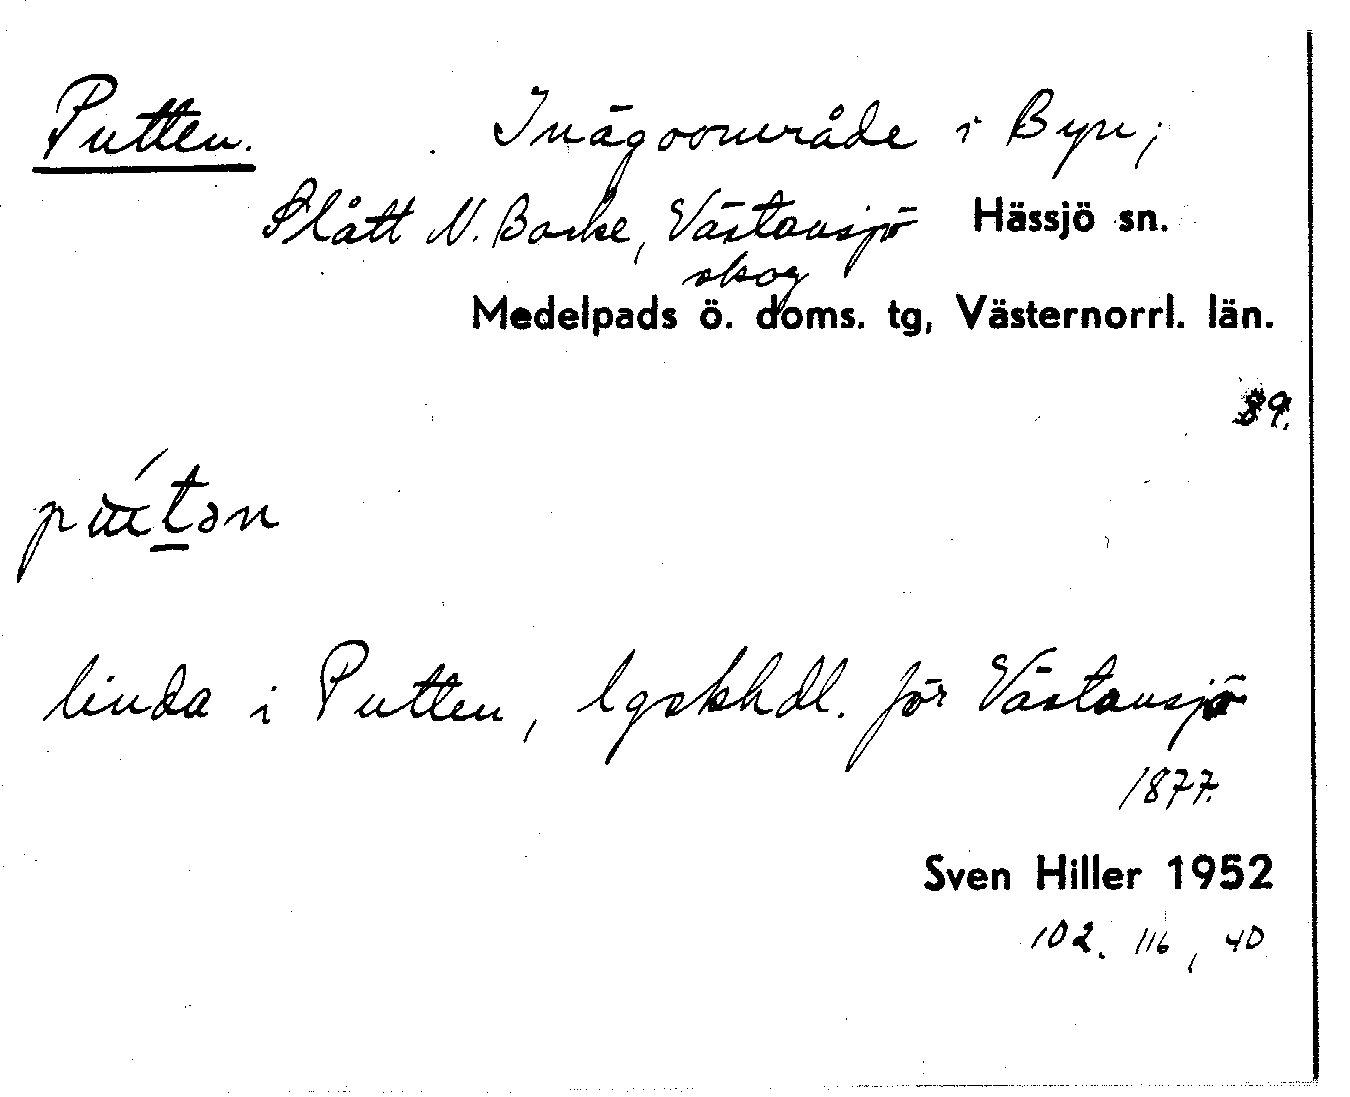 Putten. Inägoområde i Byn;
Slått N. Backe, Västansjö Hässjö sn.
skog
Medelpads ö. doms. tg, Västernorrl. län.
89.
linda i Putten, lgskhdl. för Västansjö
1877.
Sven Hiller 1952
102. 116, 40